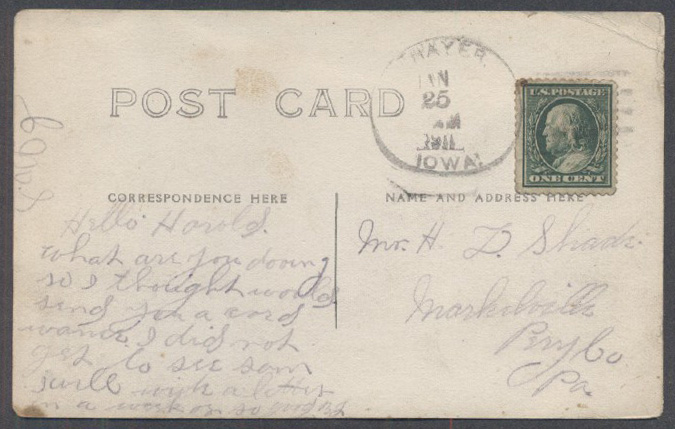 POST CARD
THAYER
JAN
25
AM
1911
IOWA.
U.S. POSTAGE
ONE CENT
CORRESPONDENCE HERE
NAME AND ADDRESS HERE
Hello Harold.
what are you dooing
so I thought would
send you a card
I did not
get to see som
will with a letter
in a week or so
Mr. H. D. Shade.
Markelville
Perry Co
Pa.